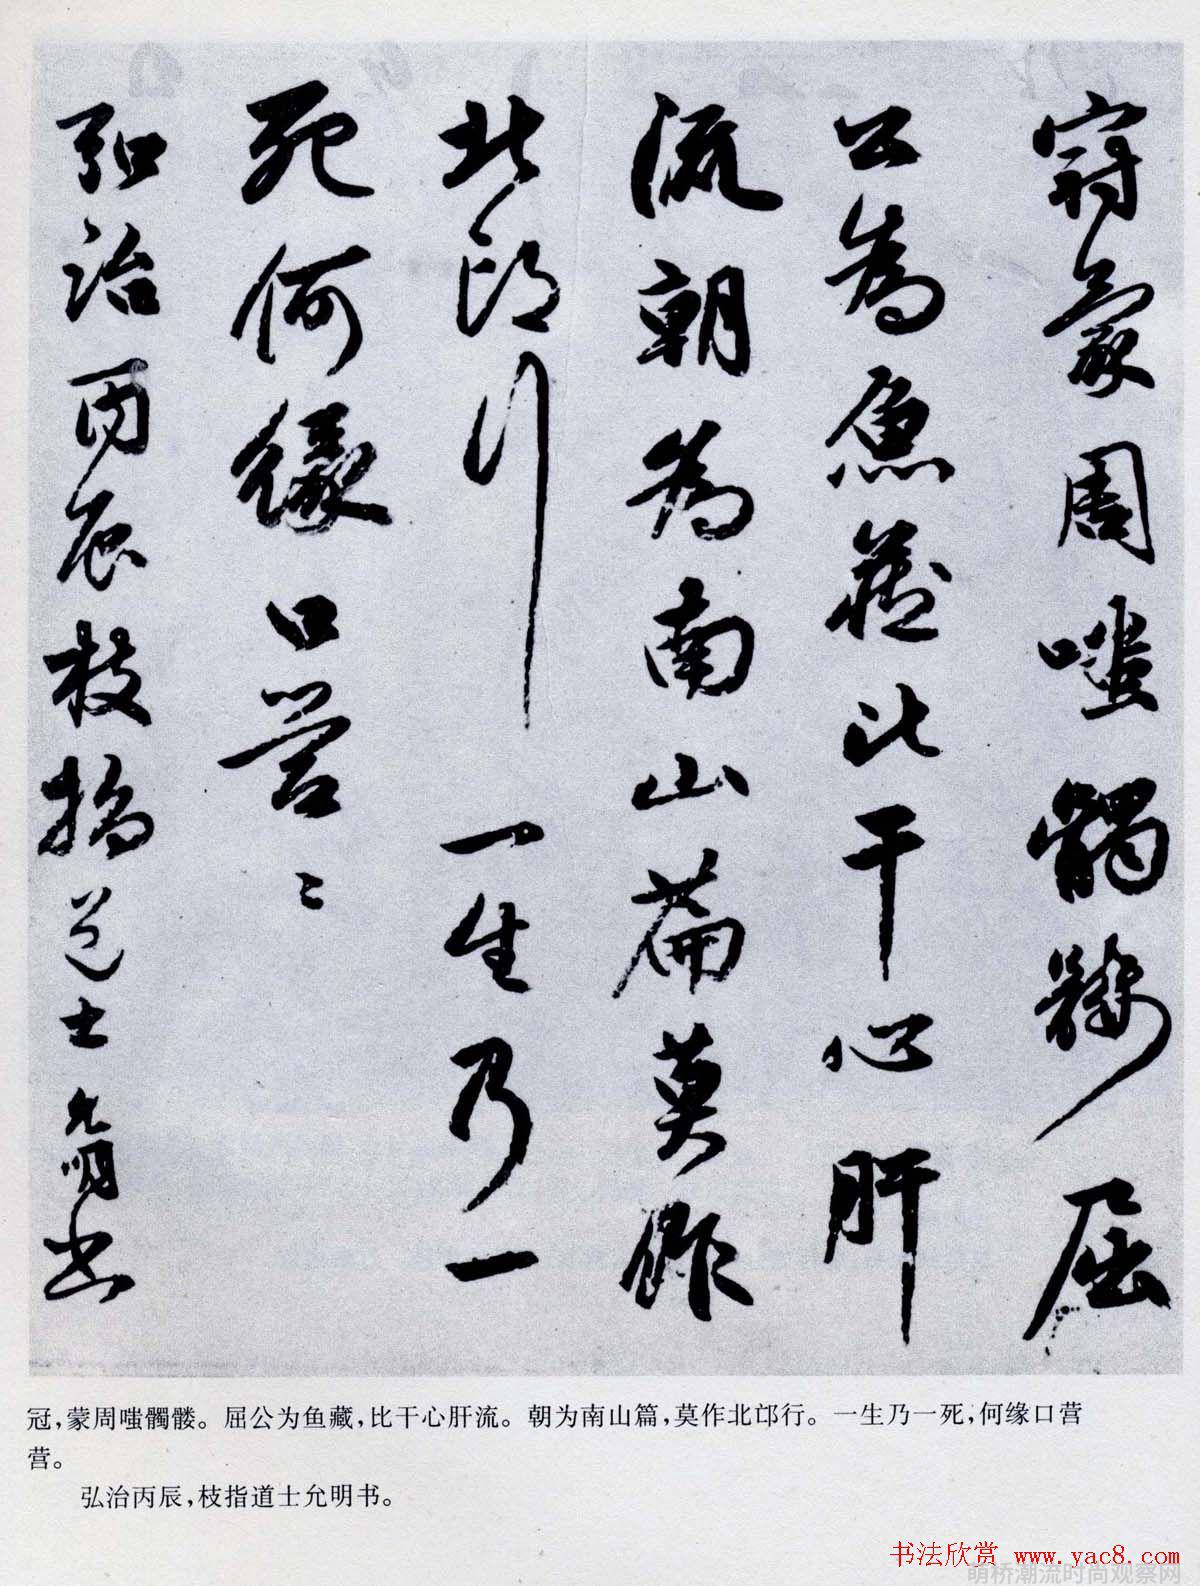 冠蒙周嗤髑髅屈
公为鱼藏比干心肝
流朝为南山篇莫作
北邙行一生乃一
死何缘口营〻
弘治丙辰枝指道士允明书
冠,蒙周嗤髑髅。屈公为鱼藏,比干心肝流。朝为南山篇,莫作北邙行。一生乃一死,何缘口营
营。
弘治丙辰,枝指道士允明书。
书法欣赏 www.yac8.com
萌桥潮流时尚观察网